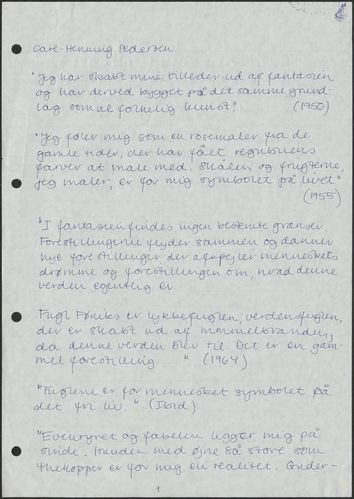 Carl-Henning Pedersen
"Jeg har skabt mine billeder ud af fantasien
og har derved bygget på det samme grund-
lag som al folkelig kunst." (1950)
"Jeg føler mig som en rosemaler fra de
gamle tider, der har fået regnbuens
farver at male med. Skålen og frugterne,
jeg maler, er for mig symbolet på livet"
(1955)
"I fantasien findes ingen bestemte grænser
Forestillingerne flyder sammen og danner
nye forestillinger der afspejler menneskets
drømme og forestillingen om, hvad denne
verden egentlig er
Fugl Føniks er lykkefuglen, verdensfuglen,
der er skabt ud af himmelbranden,
da denne verden blev til. Det er en gam-
mel forestilling " (1964)
"Fuglene er for mennesket symbolet på
det fri liv." (Ibid)
"Eventyret og fabelen ligger mig på
sinde. Hunden med øjne så store som
thekopper er for mig en realitet. Under-
1